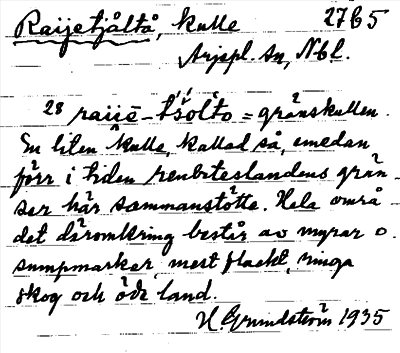 Raijetjåltå, kulle 27b5
Arjepl. sn, Nbl.
28 raiiē - tšolto = gränskullen.
En liten kulle, kallad så, emedan
förr i tiden renbeteslandens grän-
ser här sammanstötte. Hela områ-
det däromkring består av myrar o.
sumpmarker, mest flackt, ringa
skog och öde land.
H. Grundström 1935